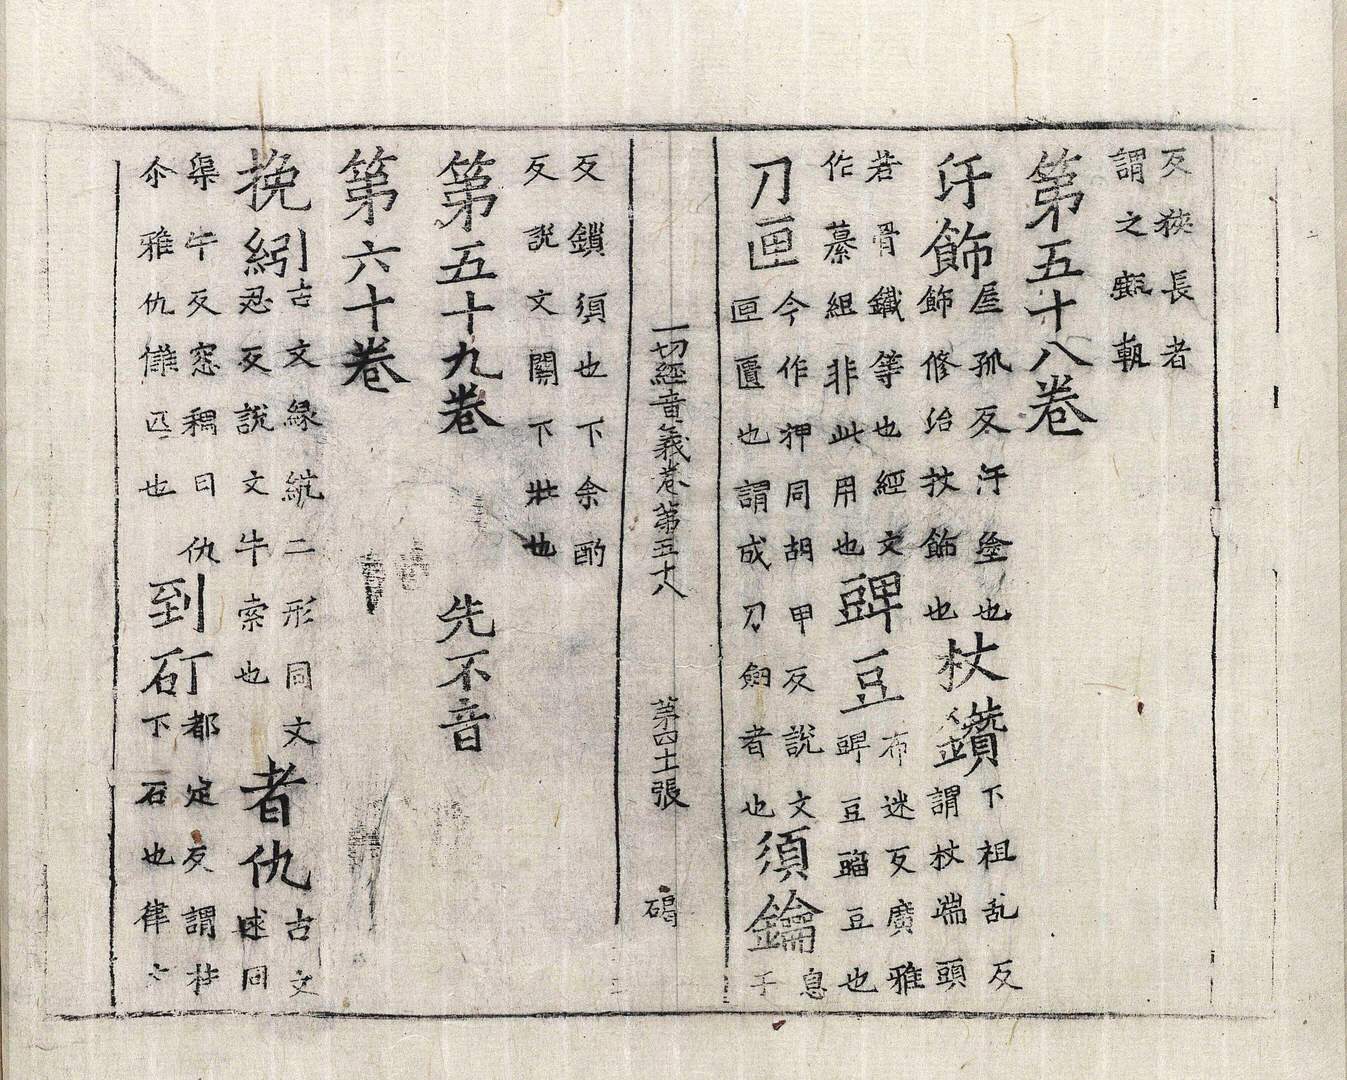 反狹長者
謂之甂㼝
第五十八卷
汙飾屋孤反汙塗也
飾修治扙飾也
杖鑽下祖乱反
謂杖端頭
若骨鐵等也經文
作纂組非此用也
豍豆布迷反廣雅
豍豆䝁豆也
刀匣今作押同胡甲反說文
匣匱也謂成刀劒者也
須鑰息
于
一切經音義卷第五十八 第四十張 碣
反鎖須也下余酌
反說文關下牡也
第五十九卷 先不音
第六十卷
挽紖古文緣䋎二形同文
忍反說文牛索也
者仇古文
逑同
渠牛反怨耦曰仇
尒雅仇讎匹也
到矴都定反謂柱
下石也律文